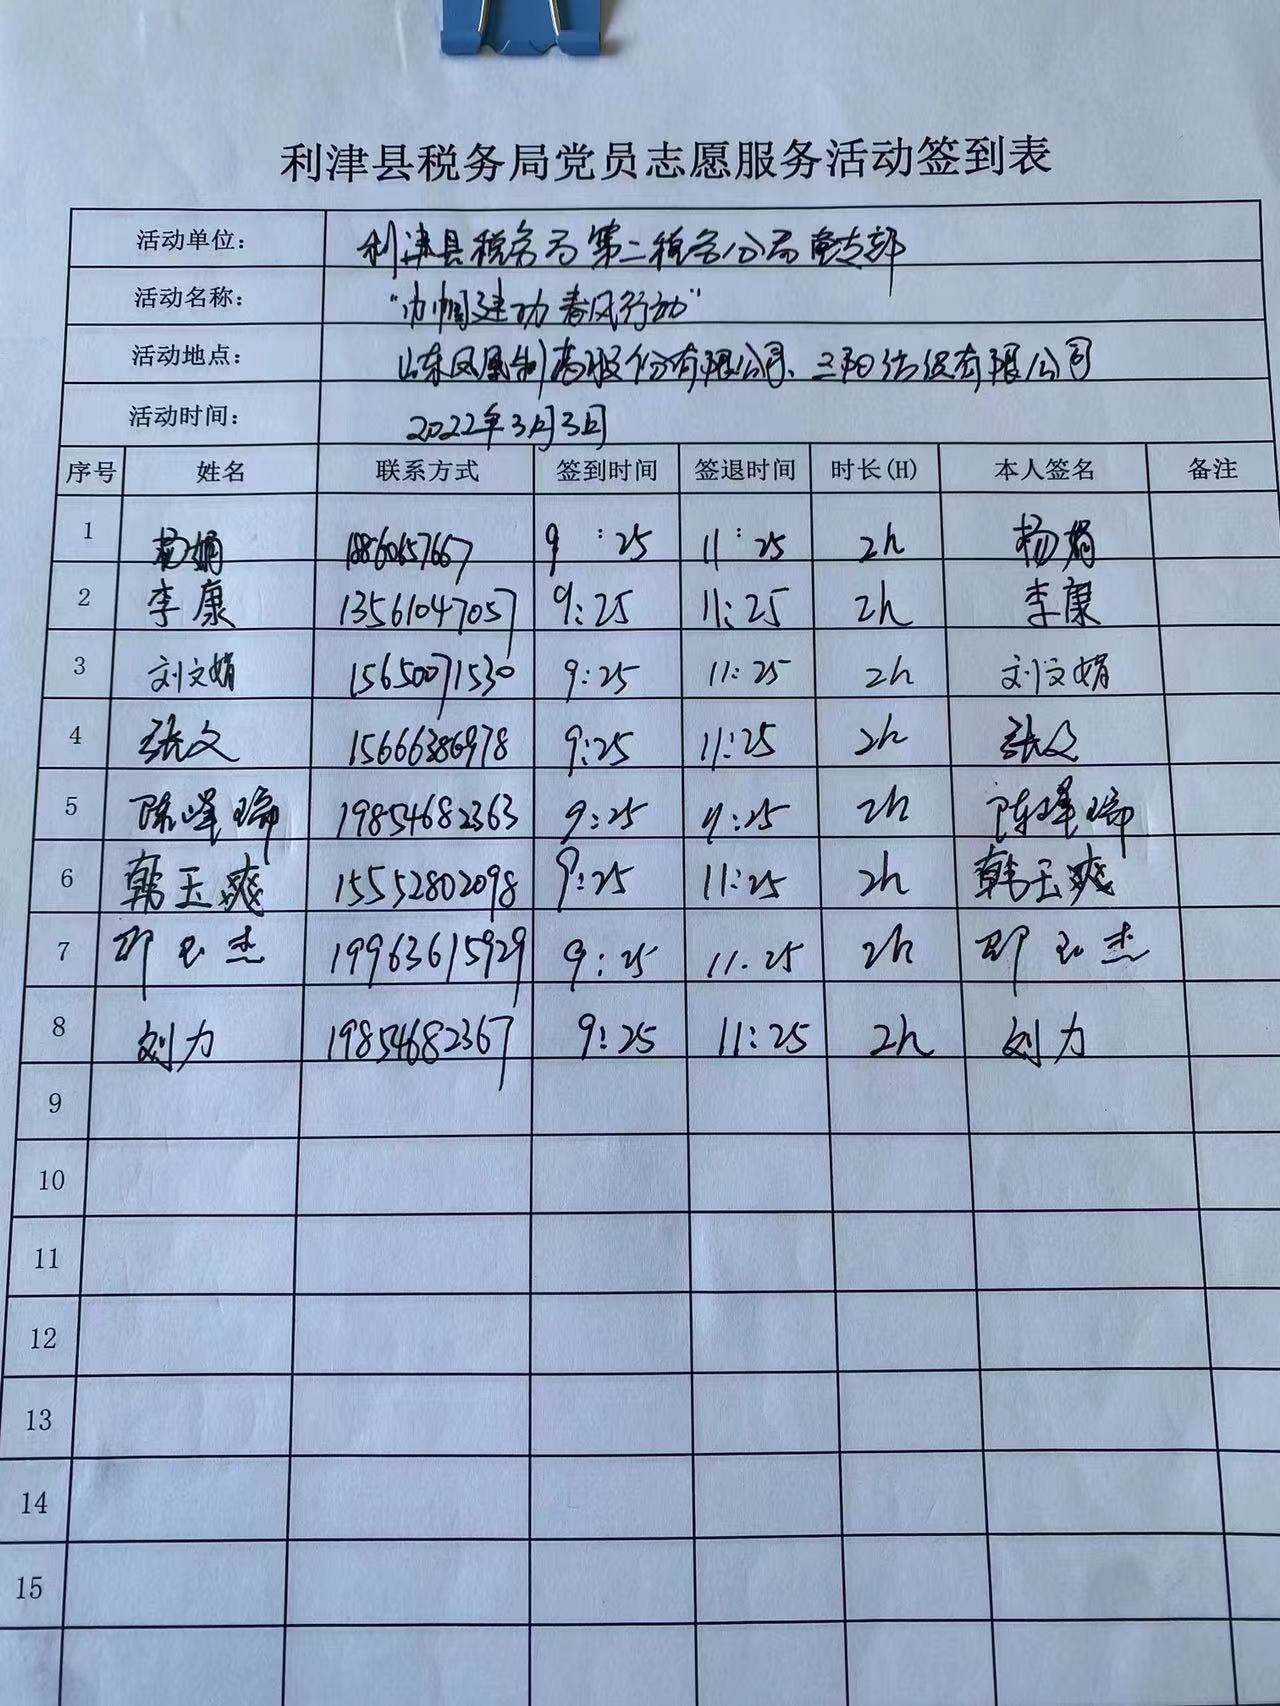 利津县税务局党员志愿服务活动签到表
活动单位： 利津县税务局第二税务分局党支部
活动名称： “巾帼建功 春风行动”
活动地点： 山东凤凰制药股份有限公司、三阳纺织有限公司
活动时间： 2022年3月3日
序号 姓名 联系方式 签到时间 签退时间 时长(H) 本人签名 备注
1 杨娟 18860657667 9：25 11：25 2h 杨娟
2 李康 13561047057 9:25 11:25 2h 李康
3 刘文娟 15650071530 9:25 11:25 2h 刘文娟
4 张文 15666386978 9:25 11:25 2h 张文
5 陈峰瑞 19854682363 9:25 11:25 2h 陈峰瑞
6 韩玉爽 15552802098 9:25 11:25 2h 韩玉爽
7 杰 19963615929 9:25 11.25 2h 杰
8 刘力 19854682367 9:25 11:25 2h 刘力
9
10
11
12
13
14
15